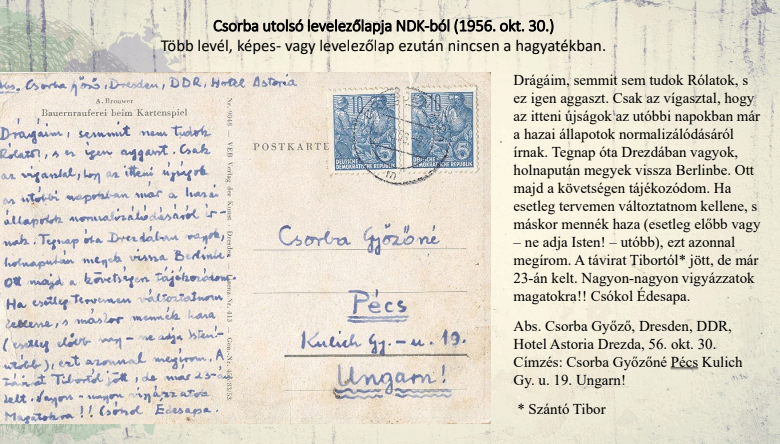 Csorba utolsó levelezőlapja NDK-ból (1956. okt. 30.)
Több levél, képes- vagy levelezőlap ezután nincsen a hagyatékban.
Abs. Csorba Győző, Dresden, DDR, Hotel Astoria
A. Brouwer
Bauernrauferei beim Kartenspiel
Drágáim, semmit nem tudok
Rólatok, s ez igen aggaszt. Csak
az vigasztal, hogy az itteni újságok
az utóbbi napokban már a hazai
állapotok normalizálódásáról ír-
nak. Tegnap óta Drezdában vagyok,
holnapután megyek vissza Berlinbe.
Ott majd a követségen tájékozódom.
Ha esetleg tervemen változtatnom
kellene, s máskor mennék haza
(esetleg előbb vagy – ne adja Isten! –
utóbb), ezt azonnal megírom. A
távirat Tibortól jött, de már 23-án
kelt. Nagyon-nagyon vigyázzatok
Magatokra!! Csókol Édesapa.
VEB Verlag der Kunst Dresden
POSTKARTE
10
10
DEUTSCHE
DEMOKRATISCHE REPUBLIK
DEUTSCHE
DEMOKRATISCHE REPUBLIK
Csorba Győzőné
Pécs
Kulich Gy. – u. 19.
Ungarn!
Drágáim, semmit sem tudok Rólatok, s
ez igen aggaszt. Csak az vígasztal, hogy
az itteni újságok az utóbbi napokban már
a hazai állapotok normalizálódásáról
írnak. Tegnap óta Drezdában vagyok,
holnapután megyek vissza Berlinbe. Ott
majd a követségen tájékozódom. Ha
esetleg tervemen változtatnom kellene, s
máskor mennék haza (esetleg előbb vagy
– ne adja Isten! – utóbb), ezt azonnal
megírom. A távirat Tibortól* jött, de már
23-án kelt. Nagyon-nagyon vigyázzatok
magatokra!! Csókol Édesapa.
Abs. Csorba Győző, Dresden, DDR,
Hotel Astoria Drezda, 56. okt. 30.
Címzés: Csorba Győzőné Pécs Kulich
Gy. u. 19. Ungarn!
* Szántó Tibor